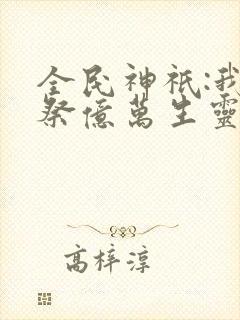 全民神祇:我
祭億萬生靈
高梓淳